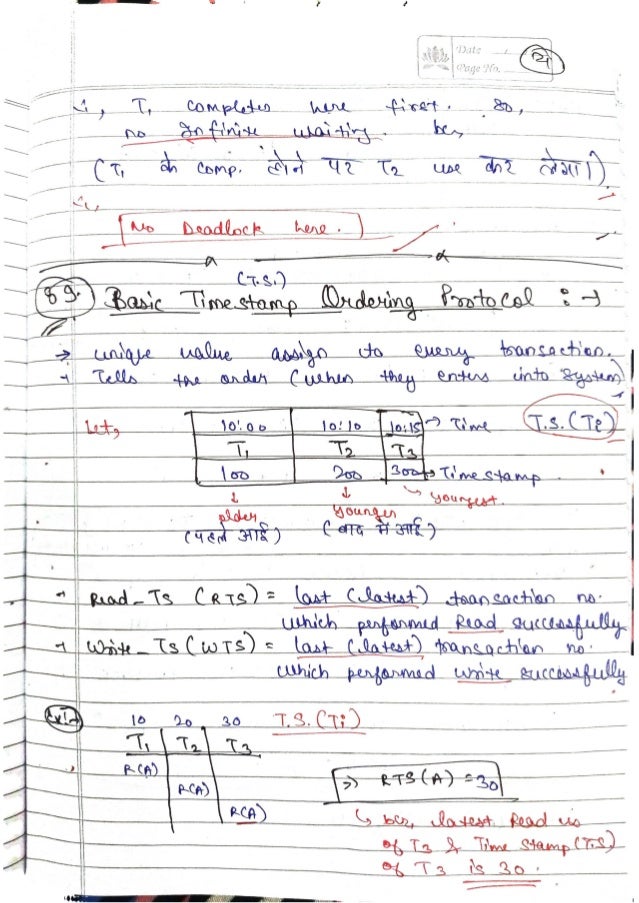 Date
Page No.
∴, T1 completes here first. So,
no Infinite waiting. bcz,
(T1 के comp. होने पर T2 use कर लेगा।)
∴,
No Deadlock here.
(T.S.)
89. Basic Timestamp Ordering Protocol :→
→ unique value assign to every transaction.
→ Tells the order (when they enters into System)
Let, 10:00 10:10 10:15 → Time T.S.(Ti)
T1 T2 T3
100 200 300 → Time stamp
↓ ↓ ↳ youngest.
older younger
(पहले आई) (बाद में आई)
→ Read_TS (RTS) = last (latest) transaction no.
which performed Read successfully
→ Write_TS (WTS) = last (latest) transaction no.
which performed write successfully
Ex:→ 10 20 30 T.S.(Ti)
T1 T2 T3
R(A)
R(A) => RTS(A) = 30
R(A) ↳ bcz, latest Read is
of T3 & Time Stamp (T.S)
of T3 is 30.